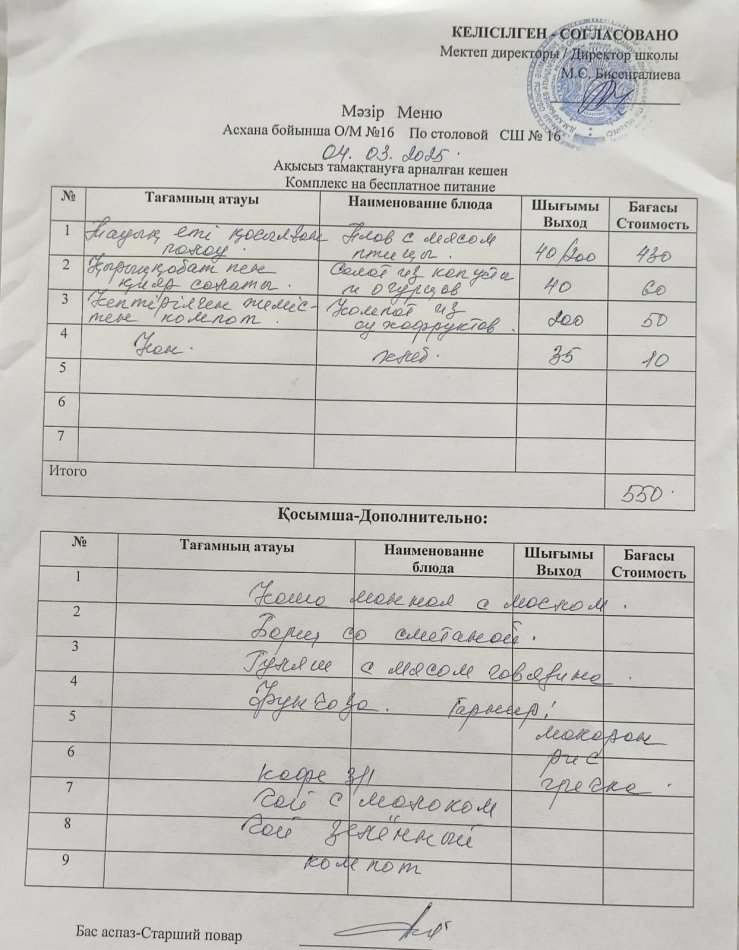 КЕЛІСІЛГЕН - СОГЛАСОВАНО
Мектеп директоры / Директор школы
М.С. Бисенгалиева
Мәзір Меню
Асхана бойынша О/М №16 По столовой СШ № 16
04. 03. 2025.
Ақысыз тамақтануға арналған кешен
Комплекс на бесплатное питание
№ Тағамның атауы Наименование блюда Шығымы Выход Бағасы Стоимость
1 Тауық еті қосылған палау. Плов с мясом птицы. 40/200 430
2 Қырыққабат пен қияр салаты. Салат из капусты и огурцов 40 60
3 Кептірілген жеміс-тен компот. Компот из сухофруктов. 200 50
4 Нан. хлеб. 35 10
5
6
7
Итого 550.
Қосымша-Дополнительно:
№ Тағамның атауы Наименование блюда Шығымы Выход Бағасы Стоимость
1 Каша манная с маслом.
2 Борщ со сметаной.
3 Гуляш с мясом говядина.
4 Фунчоза. Гарнир:
5 макарон
6 рис
кофе 3/1 гречка.
7 Чай с молоком
8 Чай зелённый
9 компот
Бас аспаз-Старший повар